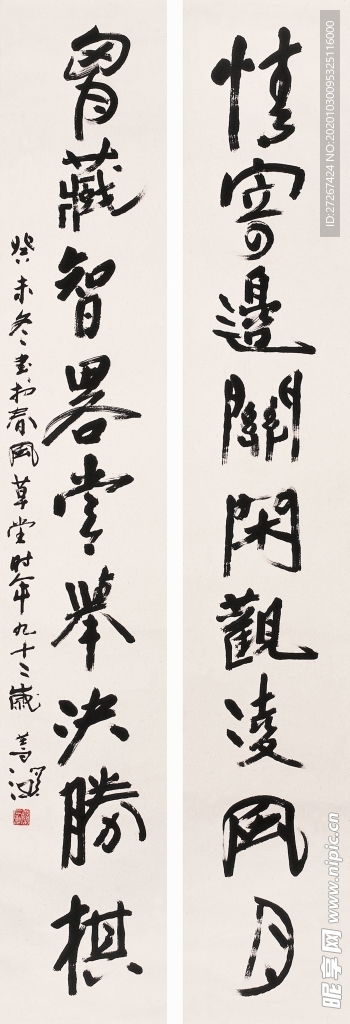 情寄邊關閑觀凌风月
胷藏智畧常舉決勝棋
癸未冬書於春风草堂时年九十二歲
ID:27267424 NO:20201030095325116000
昵享网 www.nipic.cn